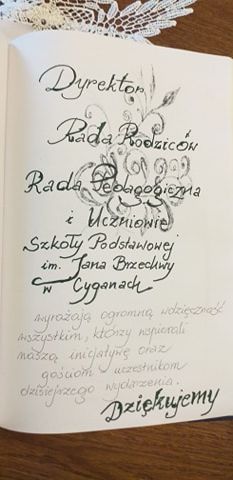 Dyrektor
Rada Rodziców
Rada Pedagogiczna
i Uczniowie
Szkoły Podstawowej
im. Jana Brzechwy
w Cyganach
wyrażają ogromną wdzięczność
wszystkim, którzy wspierali
naszą inicjatywę oraz
gościom uczestnikom
dzisiejszego wydarzenia.
Dziękujemy